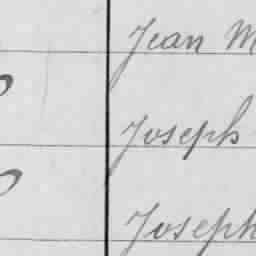 Jean M
Joseph
Joseph